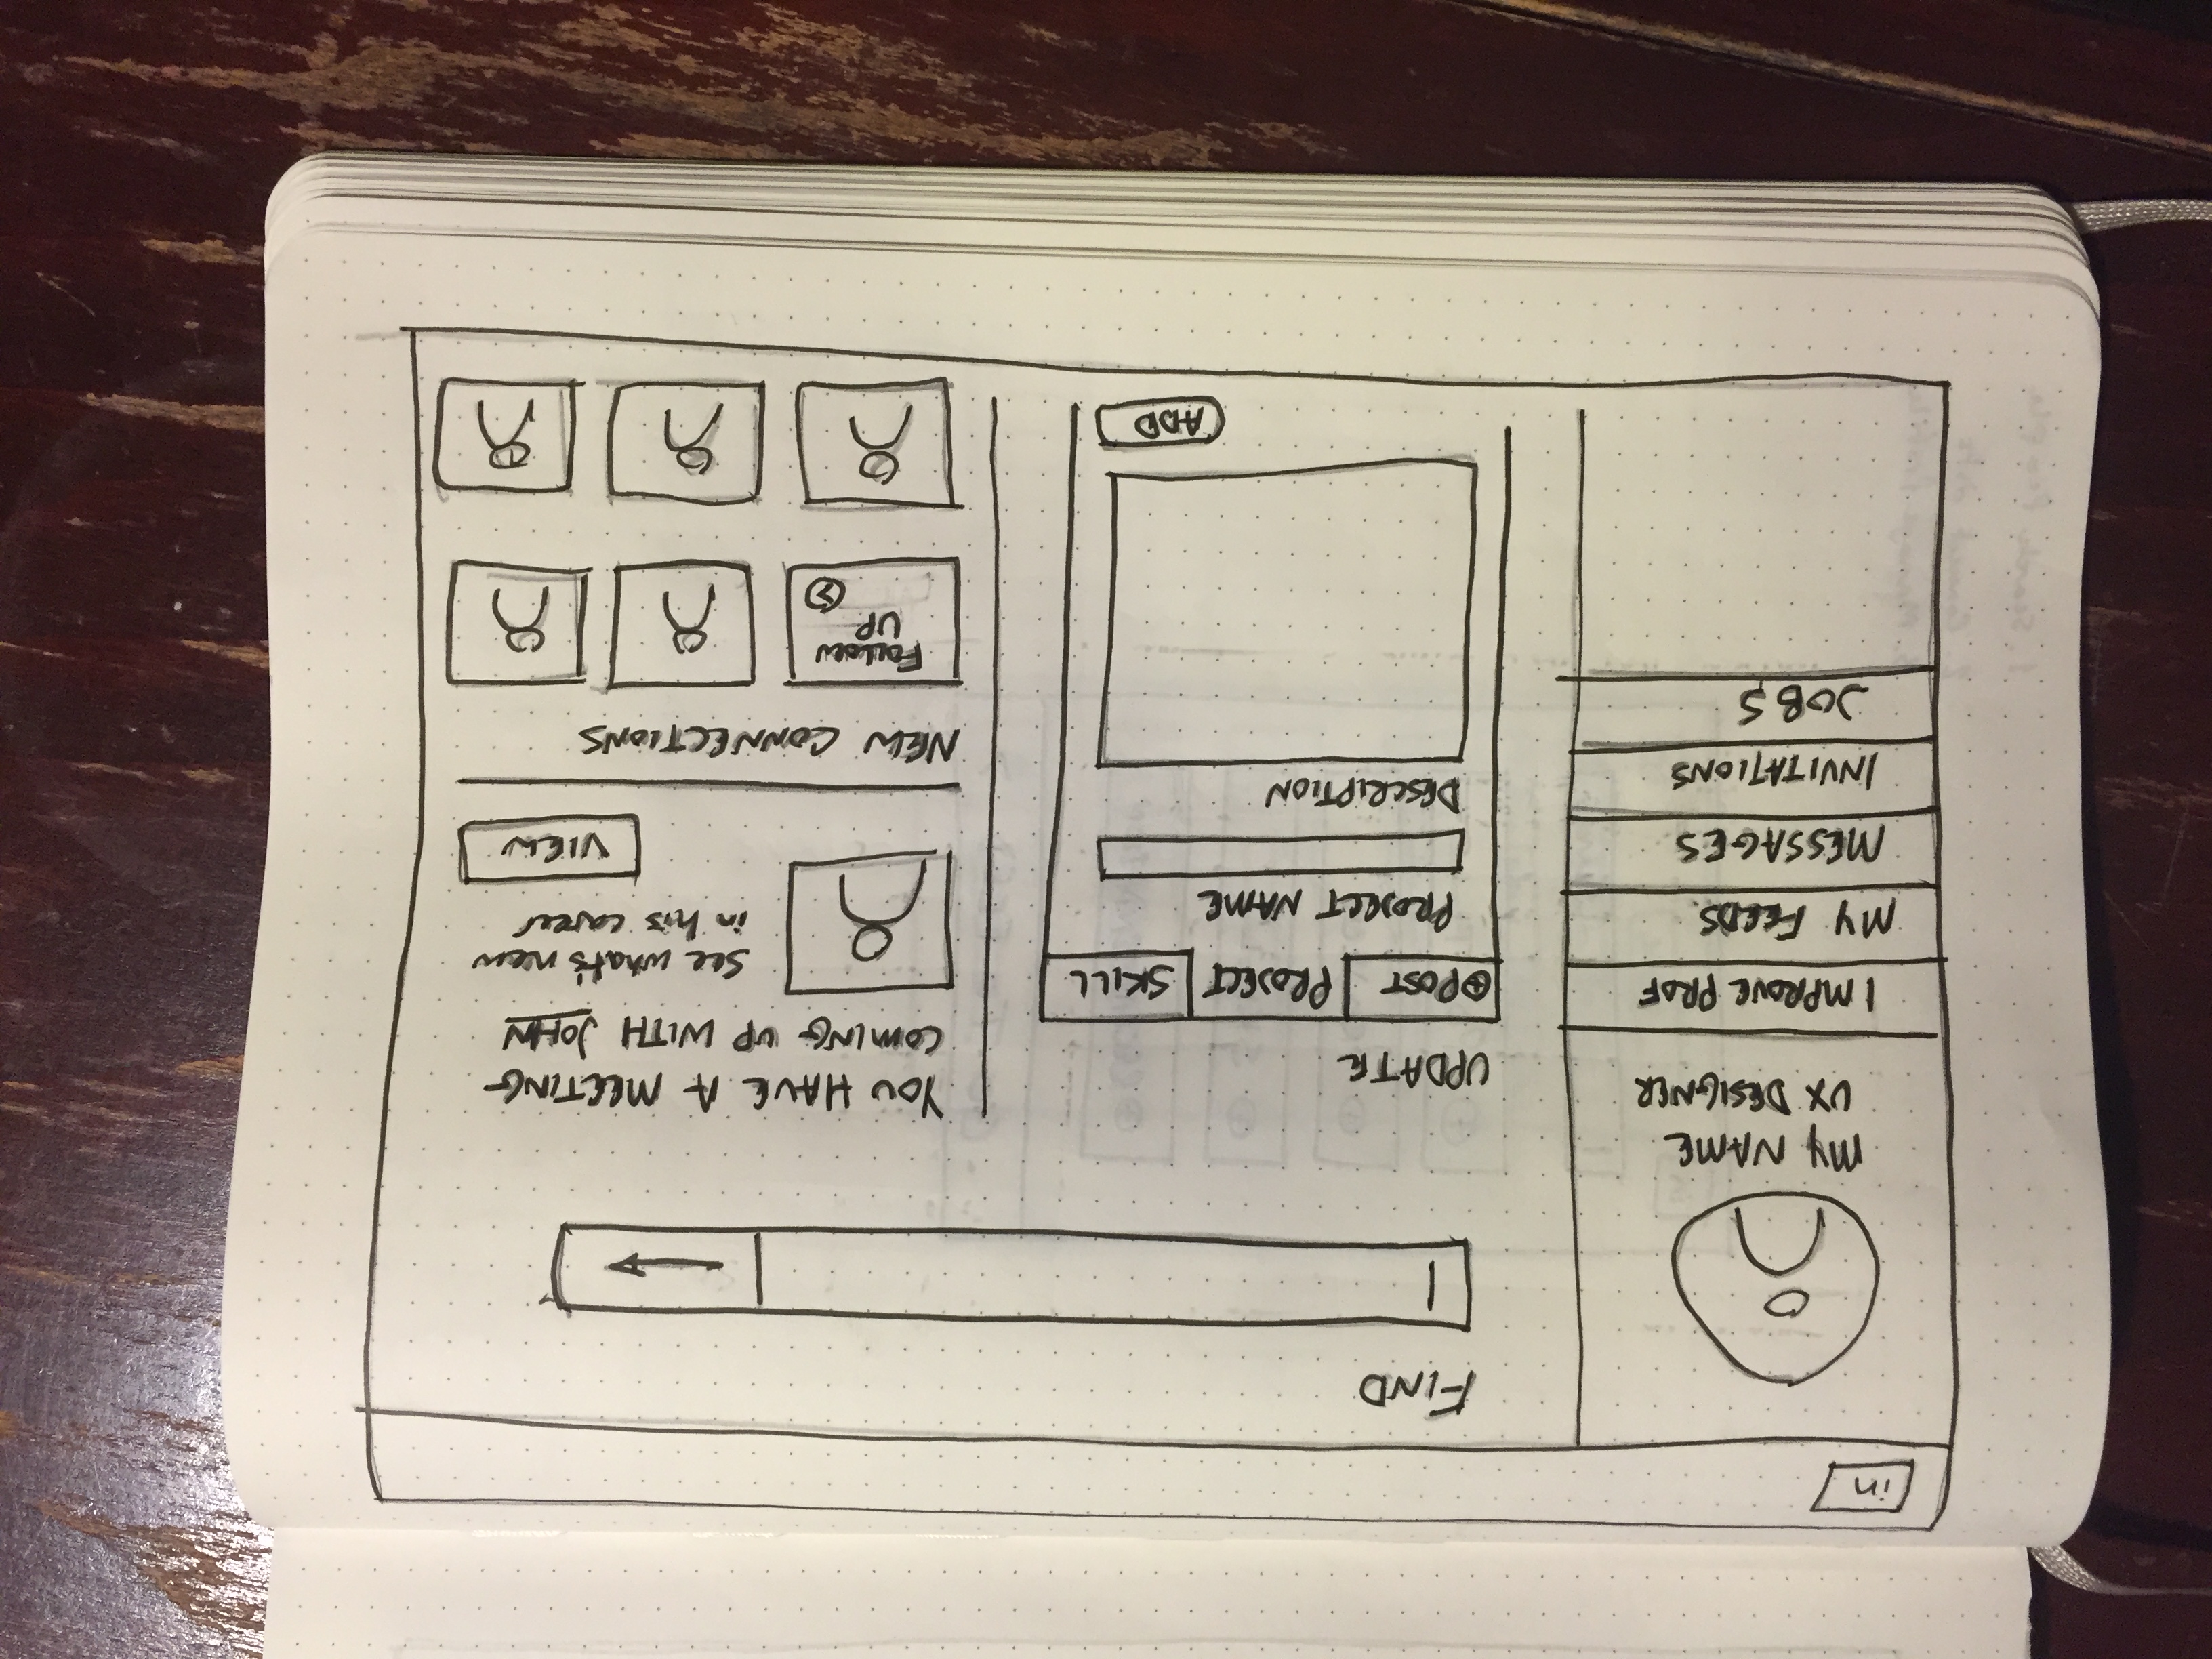 in
MY NAME
UX DESIGNER
IMPROVE PROF
MY FEEDS
MESSAGES
INVITATIONS
JOBS
FIND
UPDATE
POST
PROJECT
SKILL
PROJECT NAME
DESCRIPTION
ADD
YOU HAVE A MEETING
COMING UP WITH JOHN
See what's new
in his career
VIEW
NEW CONNECTIONS
FOLLOW
UP